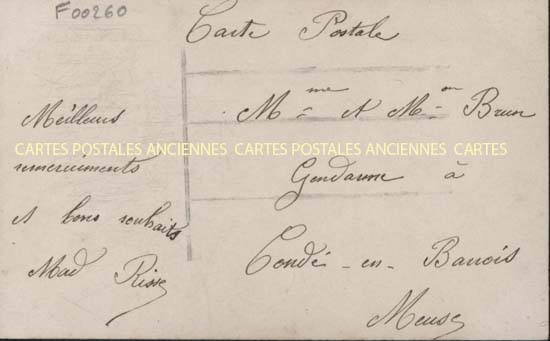 F00260
Carte Postale
Meilleurs
remerciments
et bons souhaits
Mad Risse
Mme et Mon Brun
Gendarme à
Condé-en-Barrois
Meuse
CARTES POSTALES ANCIENNES CARTES POSTALES ANCIENNES CARTES